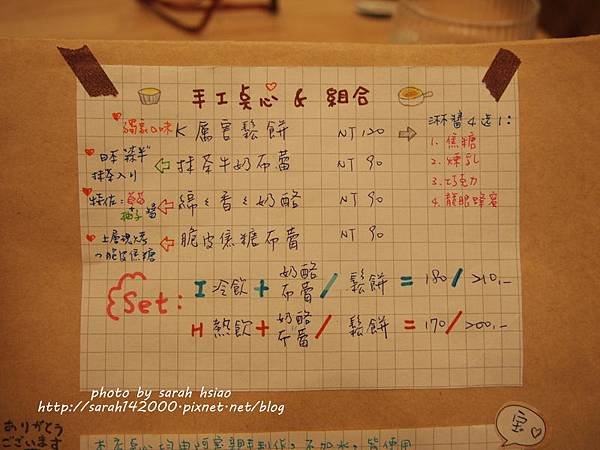 手工點心 & 組合
獨家口味 K厲害鬆餅 NT 120
淋醬4選1：
1. 焦糖
2. 煉乳
3. 巧克力
4. 龍眼蜂蜜
日本"森半"抹茶入り
抹茶牛奶布蕾 NT 90
特佐：草莓 柚子 醬
綿々香々奶酪 NT 90
上層現烤の脆皮焦糖
脆皮焦糖布蕾 NT 90
Set:
I 冷飲 + 奶酪 布蕾 / 鬆餅 = 180 / 210.-
H 熱飲 + 奶酪 布蕾 / 鬆餅 = 170 / 200.-
photo by sarah hsiao
http://sarah142000.pixnet.net/blog
ありがとう
ございます